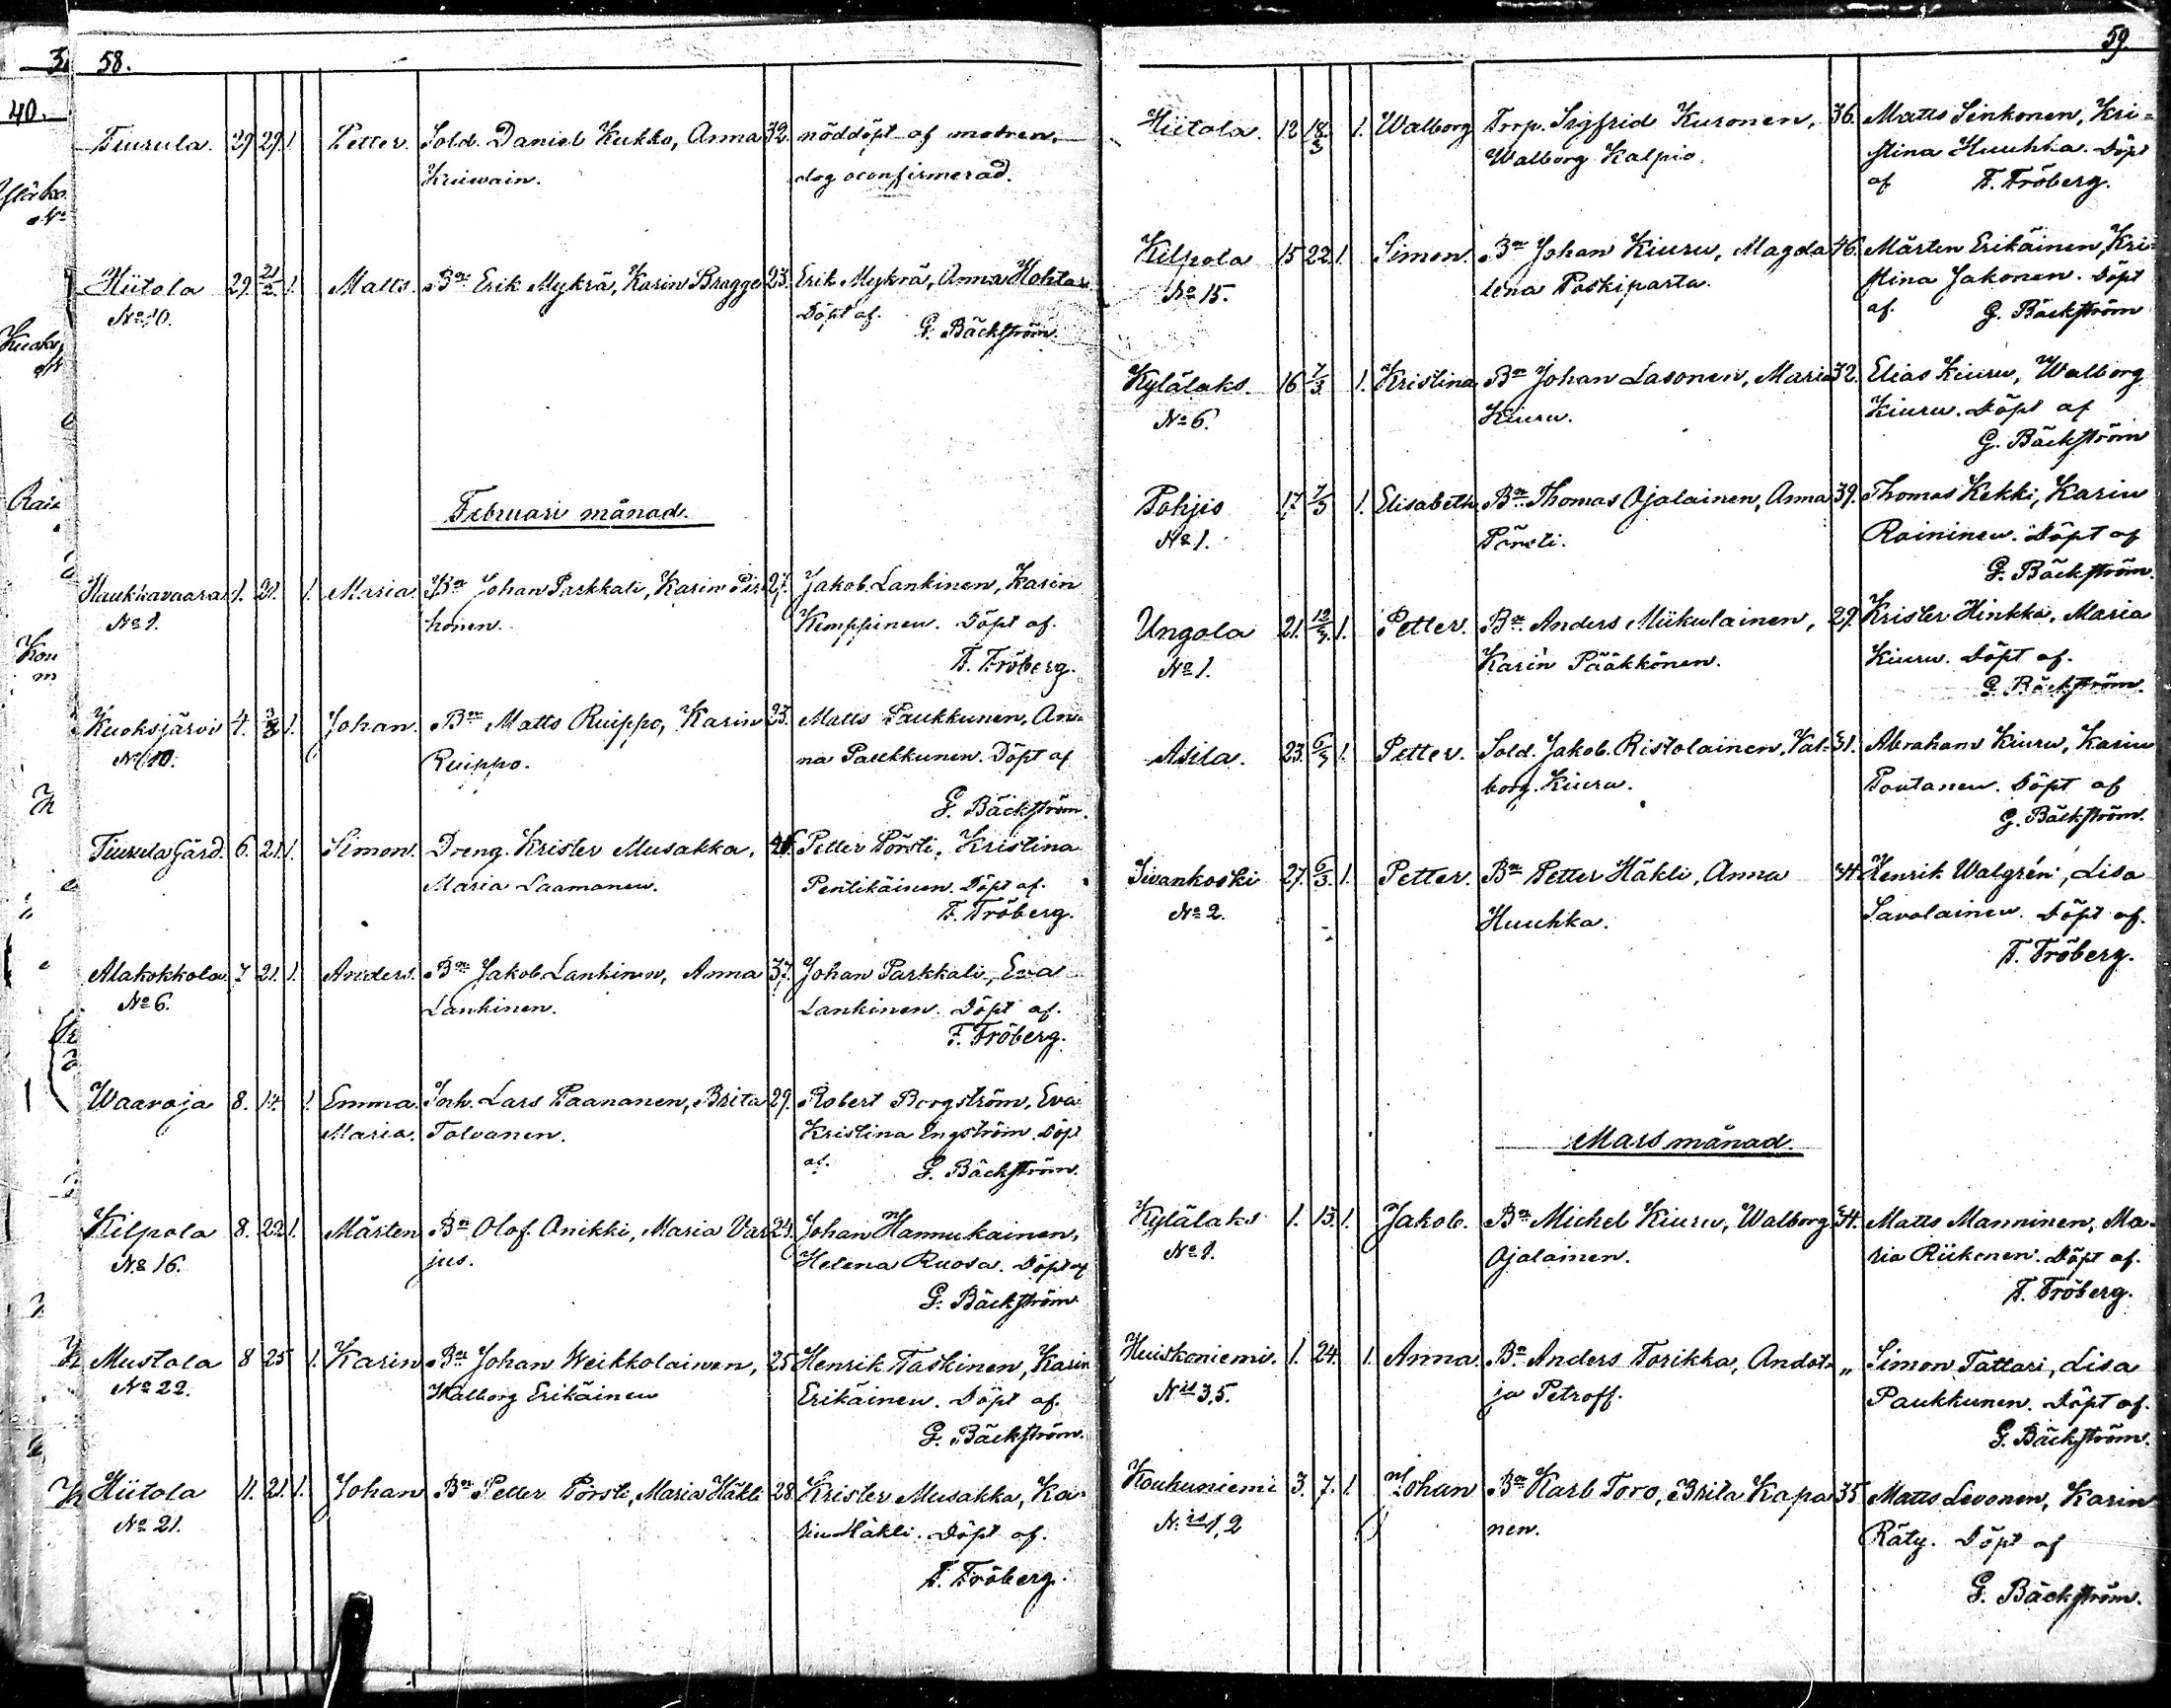 58.
Tiurula. 29 29. 1. Petter. Sold. Daniel Kukko, Anna 32. nöddöpt af modren,
Kriiwain. dog oconfirmerad.
Hiitola 29. 21/2. 1. Matts. Bn Erik Mykrä, Karin Bragge 23. Erik Mykrä, Anna Hohtar
No 10. Döpt af.
G. Bäckström.
Februari månad.
Haukkavaara 1. 21. 1. Maria Bn Johan Parkkali, Karin Pir 27. Jakob Lankinen, Karin
No 1. honen. Kemppinen. Döpt af.
F. Fröberg.
Kuoksjärvi 4. 1. Johan. Bn Matts Ruippo, Karin 23. Matts Paukkunen, An-
No 10. Ruippo. na Paukkunen. Döpt af
G. Bäckström.
Tiurula Gård. 6. 21. 1. Simon. Dreng. Krister Musakka, Petter Pörsti, Kristina
Maria Laamanen. Pentikäinen. Döpt af.
F. Fröberg.
Alahokkola 7 21. 1. Anders. Bn Jakob Lankinen, Anna 37. Johan Parkkali, Eva
No 6. Lankinen. Lankinen. Döpt af.
F. Fröberg.
Waaroja 8. 14. 1. Emma Inh. Lars Paananen, Brita 29. Robert Borgström, Eva
Maria. Tolvanen. Kristina Engström. Döpt
af. G. Bäckström.
Kilpola 8. 22. 1. Mårten Bn Olof Anikki, Maria Var 24. Johan Hannukainen,
No 16. jus. Helena Ruosa. Döpt af
G. Bäckström
Mustola 8 25 1. Karin Bn Johan Weikkolainen, 25 Henrik Taskinen, Karin
No 22. Walborg Erikäinen Erikäinen. Döpt af.
G. Bäckström.
Hiitola 11. 21. 1. Johan Bn Petter Pörsti, Maria Häkli 28. Krister Musakka, Ka-
No 21. rin Häkli. Döpt af.
F. Fröberg.
59
Hiitola. 12 18/3 1. Walborg Torp. Sigfrid Kuronen, 36. Matts Sinkonen, Kri-
Walborg Kalpio. stina Huuhka. Döpt
af F. Fröberg.
Kilpola 15 22. 1. Simon. Bn Johan Kiuru, Magda 46. Mårten Erikäinen, Kri-
No 15. lena Paskiparta. stina Jakonen. Döpt
af. G. Bäckström
Kylälaks. 16 7/3 1. Kristina Bn Johan Lasonen, Maria 32. Elias Kiuru, Walborg
No 6. Kiuru. Kiuru. Döpt af
G. Bäckström
Pohjis 17 7/3 1. Elisabeth Bn Thomas Ojalainen, Anna 39. Thomas Kekki, Karin
No 1. Pörsti. Raininen. Döpt af
G. Bäckström.
Ungola 21. 12/3. 1. Petter. Bn Anders Miikulainen, 29. Krister Hinkka, Maria
No 1. Karin Pääkkönen. Kiuru. Döpt af.
G. Bäckström.
Asila. 23. 6/3 1. Petter. Sold. Jakob Ristolainen, Val- 31. Abraham Kiuru, Karin
borg Kiuru. Poutanen. Döpt af
G. Bäckström.
Sivankoski 27. 6/3. 1. Petter. Bn Petter Häkli, Anna Henrik Walgrén, Lisa
No 2. Huuhka. Savolainen. Döpt af.
F. Fröberg.
Mars månad.
Kylälaks 1. 13. 1. Jakob. Bn Michel Kiuru, Walborg 34. Matts Manninen, Ma-
No 1. Ojalainen. ria Riikonen. Döpt af.
F. Fröberg.
Huiskoniemi. 1. 24. 1. Anna. Bn Anders Torikka, Andot- „ Simon Tattari, Lisa
Nis 3,5. ja Petroff. Paukkunen. Döpt af.
G. Bäckström.
Koukuniemi 3. 7. 1. Johan Bn Karl Toro, Brita Kapa 35 Matts Levonen, Karin
Nis 1,2 nen. Räty. Döpt af
G. Bäckström.